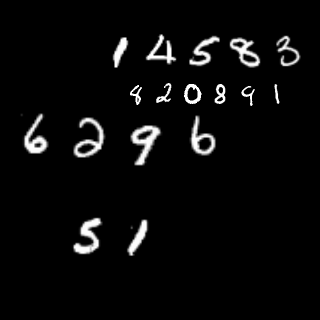 14583
820891
6296
51